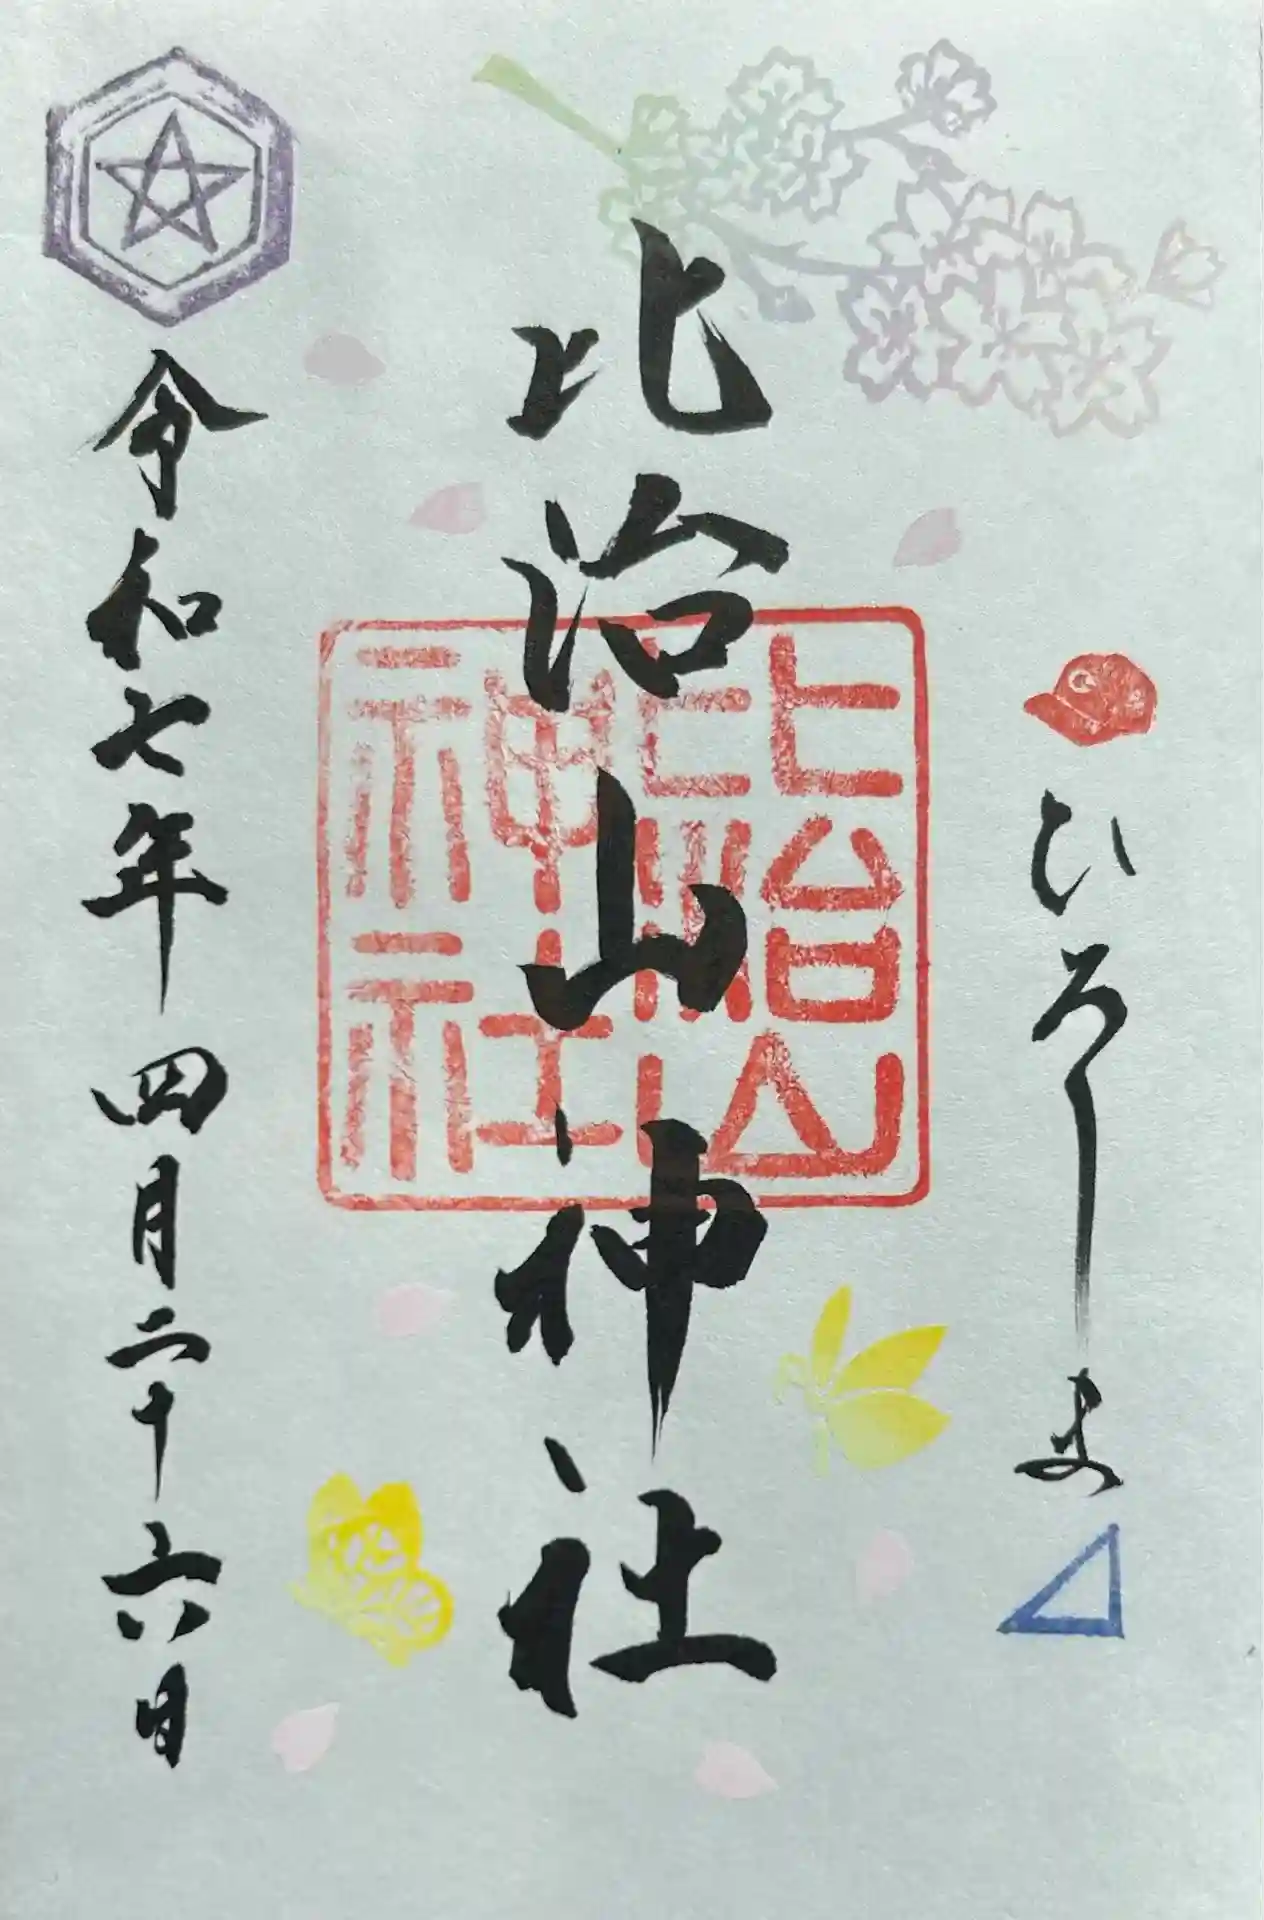 ひろしま
比治山神社
比治山比治山神社
令和七年四月二十六日